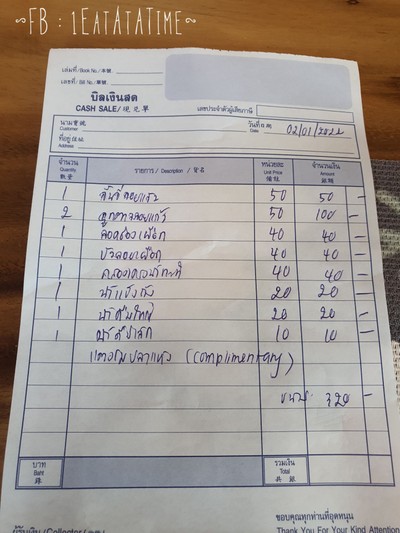 FB : 1EATATATIME
เล่มที่/Book No./本號
เลขที่/Bill No./單號
บิลเงินสด
CASH SALE/现兑單
เลขประจำตัวผู้เสียภาษี
นาม 寶號
Customer
วันที่ 日期
Date
02/01/2022
ที่อยู่ 住址
Address
จำนวน Quantity 數量
รายการ / Description / 貨名
หน่วยละ Unit Price 價銀
จำนวนเงิน Amount 銀碼
1 ลิ้นจี่ลอยแก้ว 50 50 -
2 ลูกตาลลอยแก้ว 50 100 -
1 ลอดช่องเผือก 40 40 -
1 บัวลอยเผือก 40 40 -
1 40 40 -
1 น้ำแข็งถัง 20 20 -
1 น้ำดื่มใหญ่ 20 20 -
1 เล็ก 10 10 -
แตงโมปลาแห้ง (complimentary)
320 -
บาท
Baht
銖
รวมเงิน
Total
共銀
ขอบคุณทุกท่านที่อุดหนุน
ผู้รับเงิน/Collector/
Thank You For Your Kind Attention